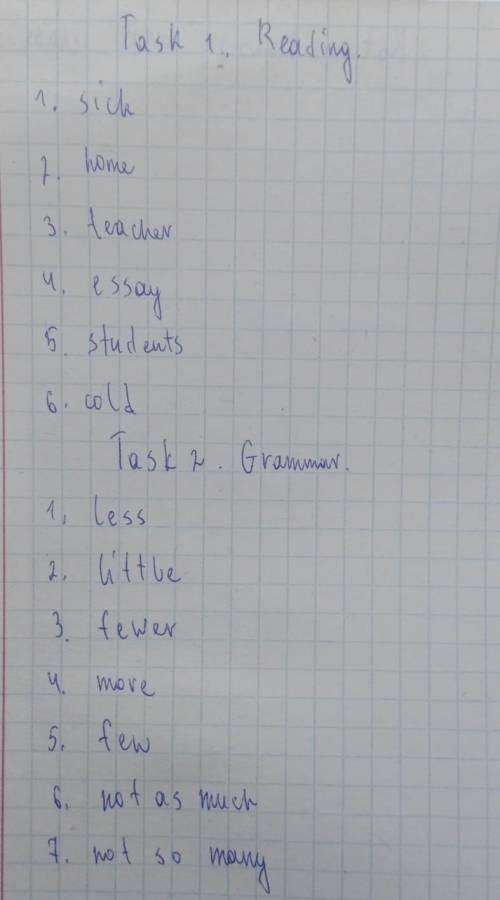 Task 1. Reading.
1. sick
2. home
3. teacher
4. essay
5. students
6. cold
Task 2. Grammar.
1. less
2. little
3. fewer
4. more
5. few
6. not as much
7. not so many